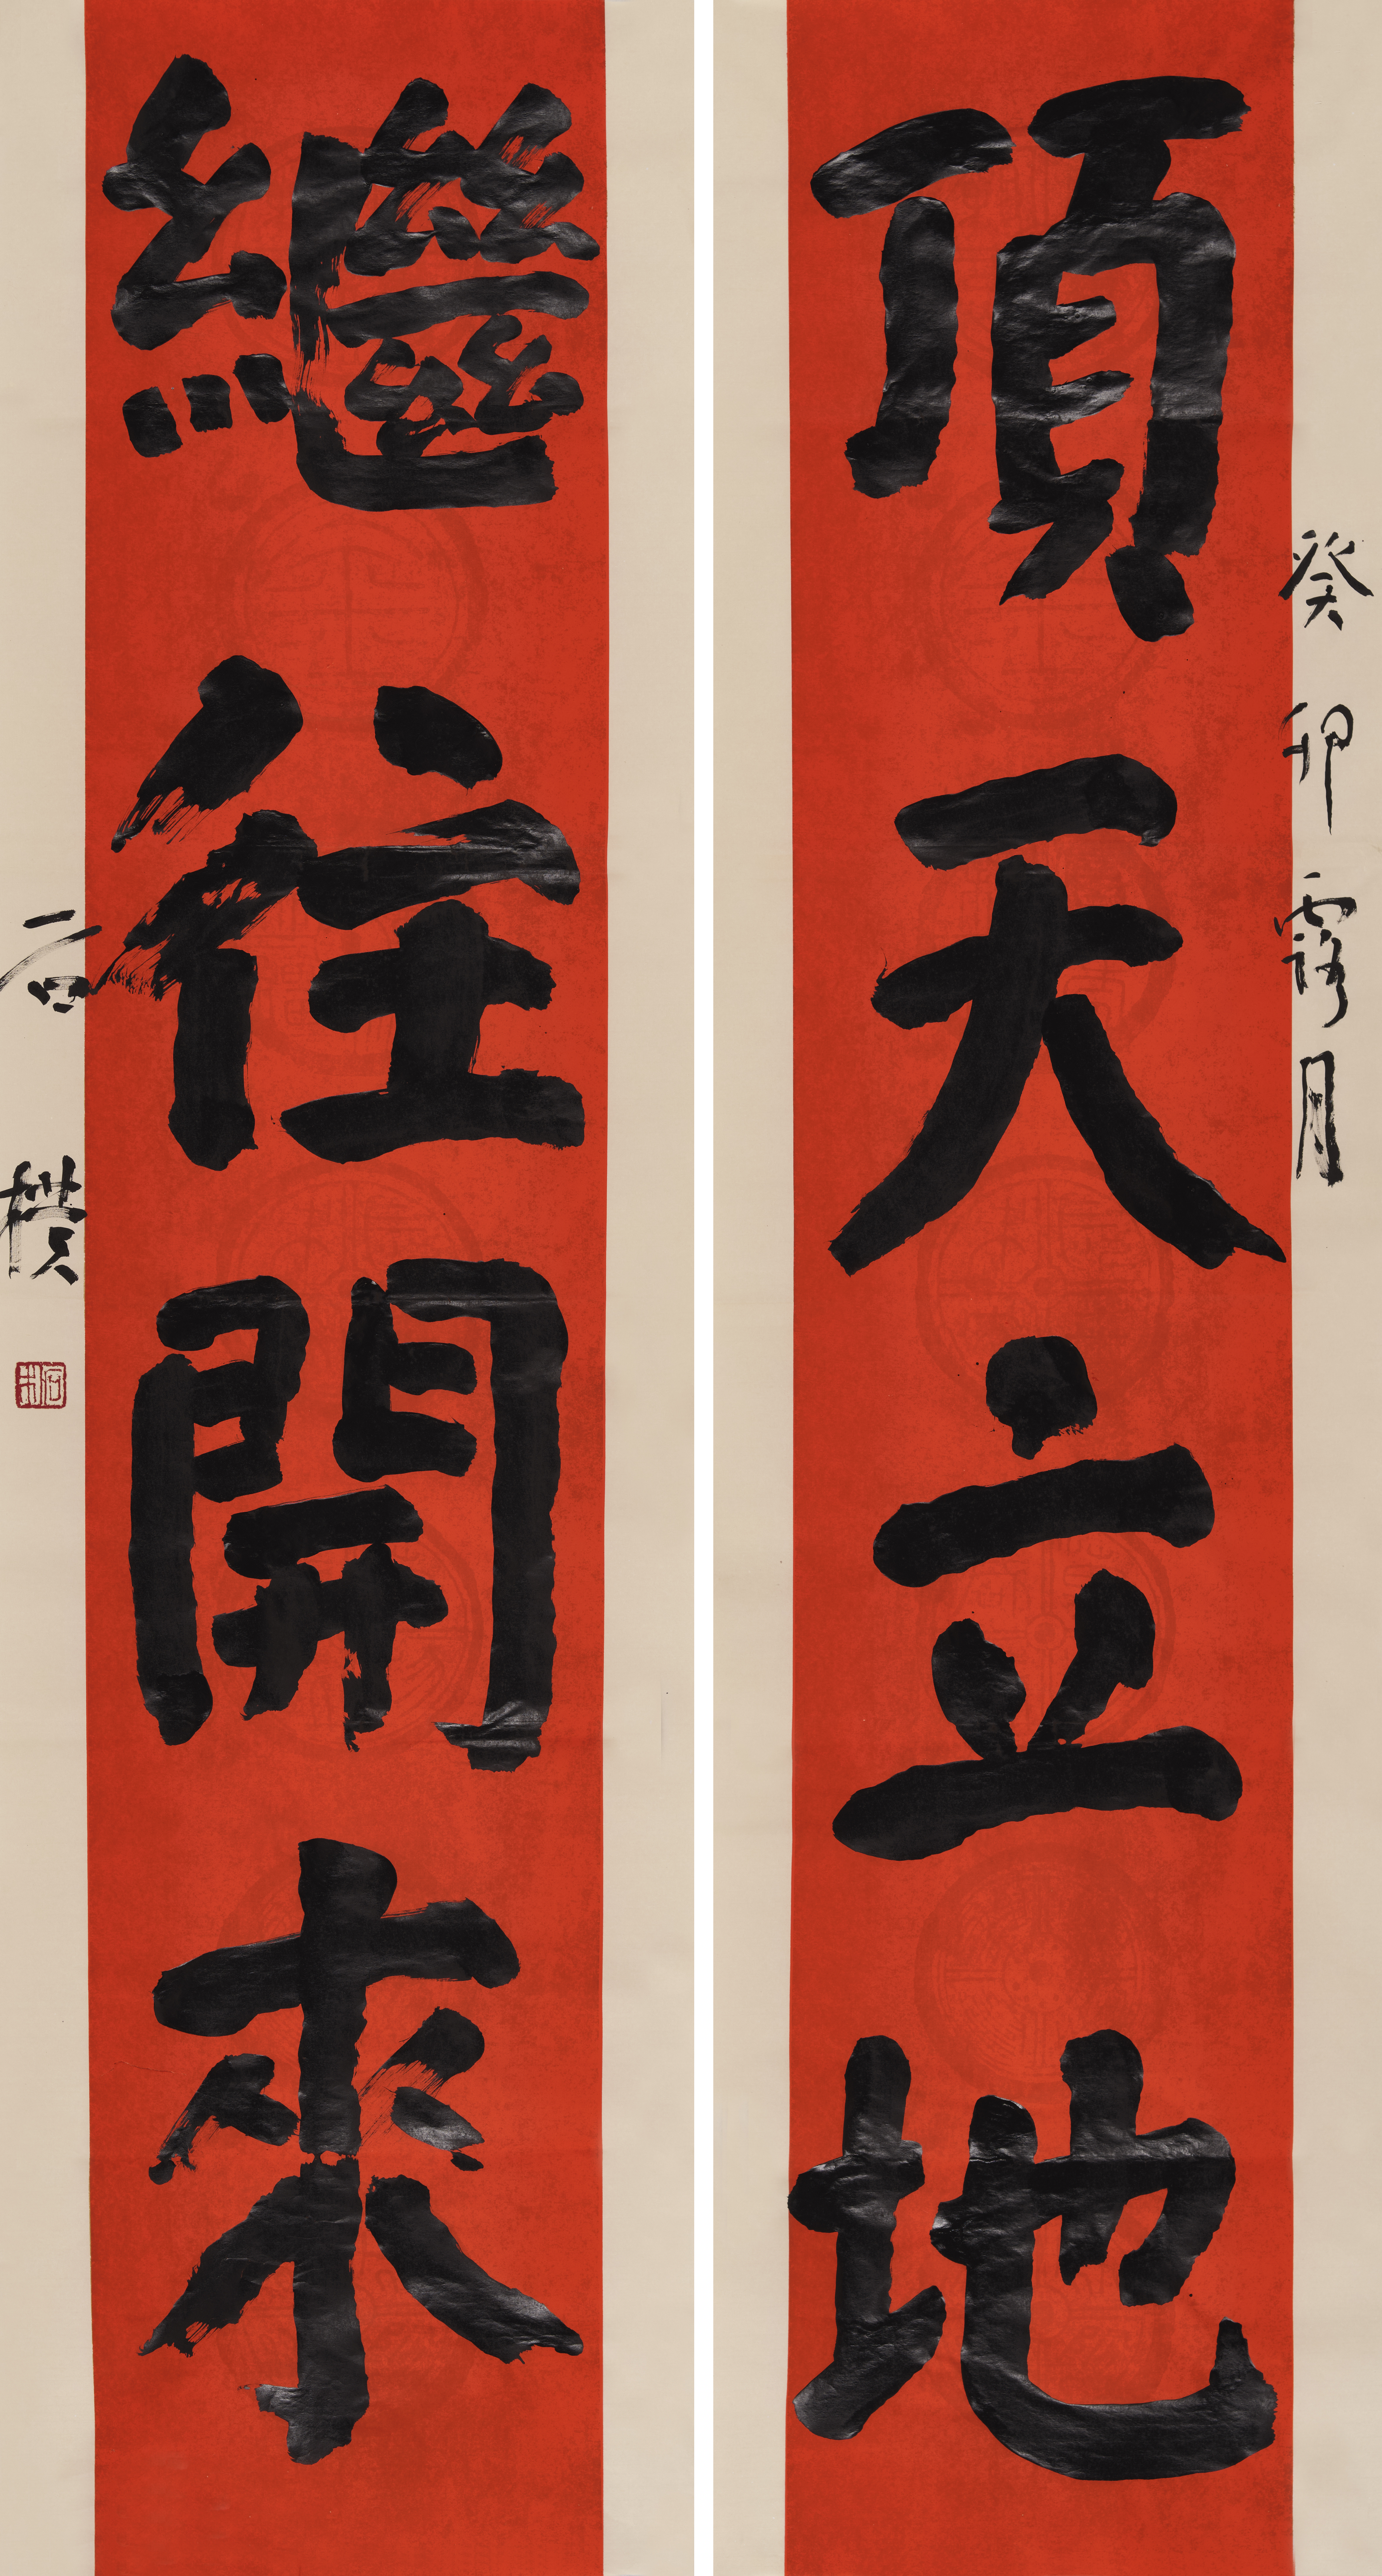 癸卯露月
頂天立地
繼往開來
石樸